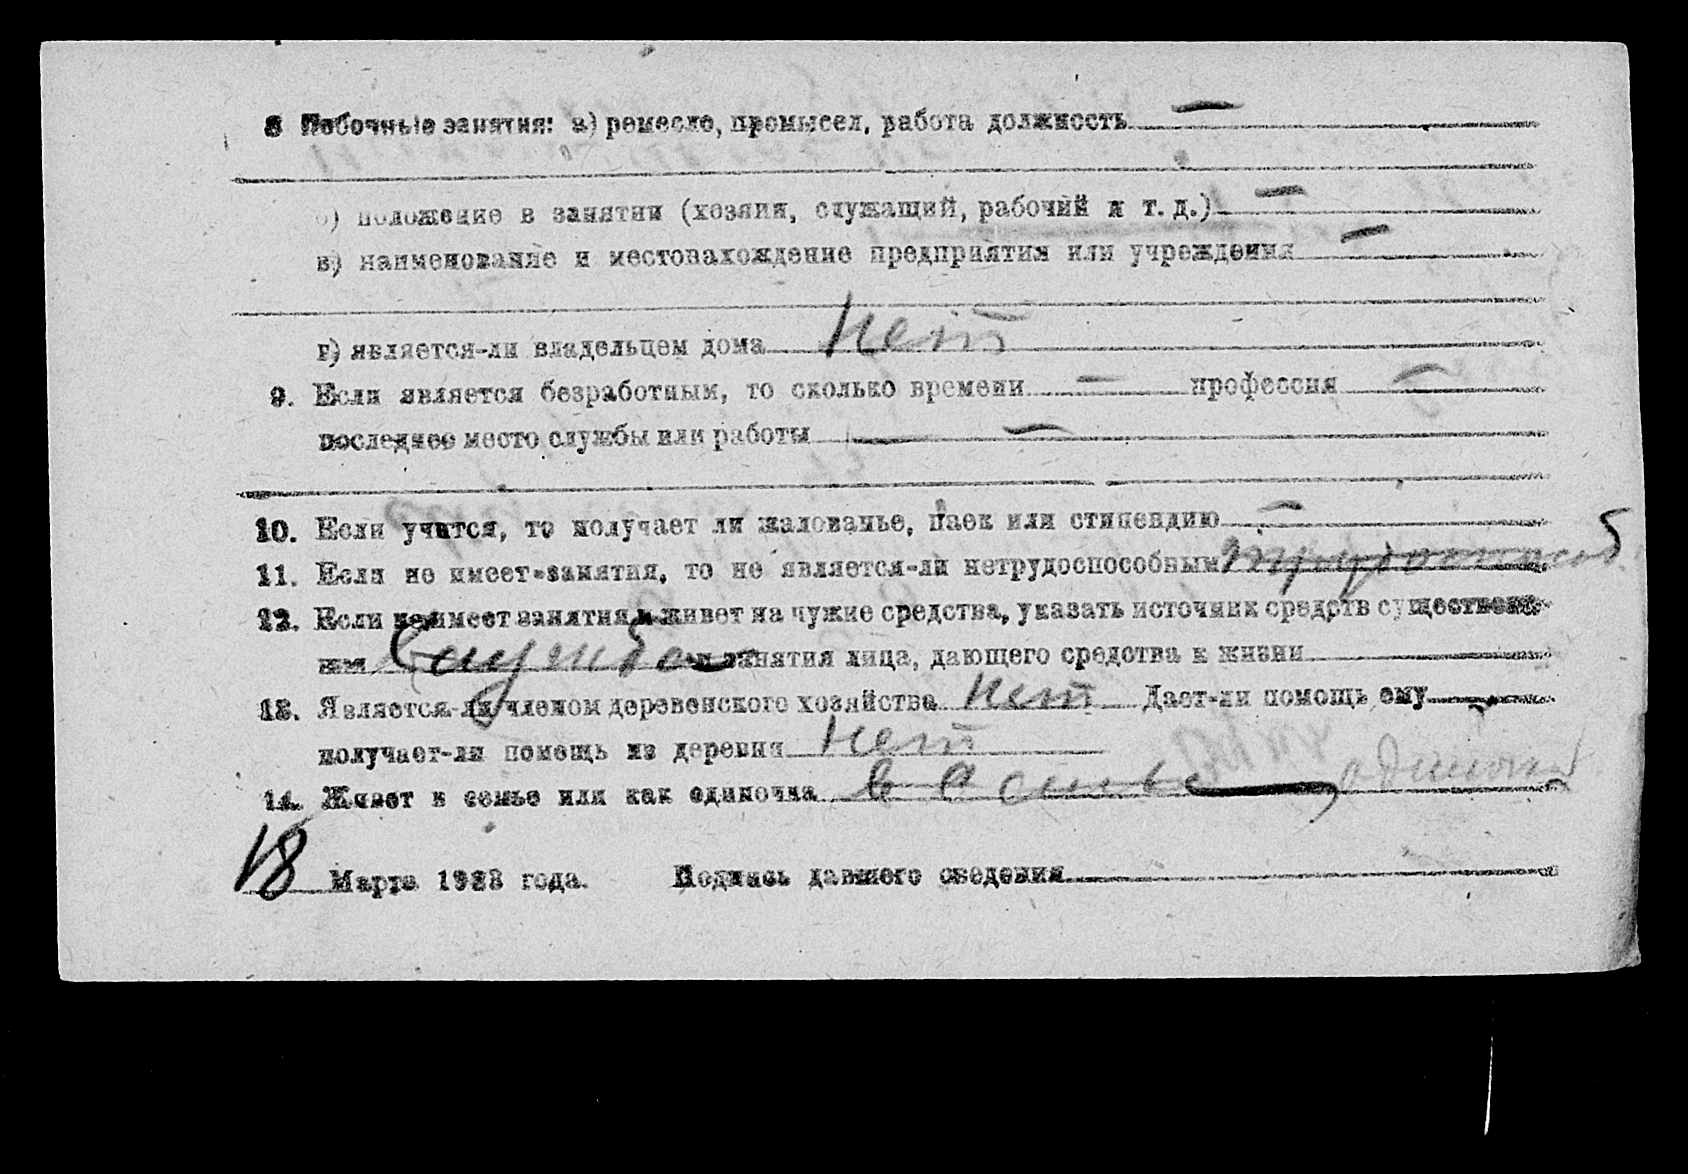 8 Побочные занятия: а) ремесло, промысел, работа должность —
б) положение в занятии (хозяин, служащий, рабочий и т. д.) —
в) наименование и местонахождение предприятия или учреждения —
г) является-ли владельцем дома нет
9. Если является безработным, то сколько времени — профессия —
последнее место службы или работы —
10. Если учится, то получает ли жалованье, паек или стипендию —
11. Если не имеет занятия, то не является-ли нетрудоспособным
12. Если не имеет занятия и живет на чужие средства, указать источник средств существова-
ния Служба и занятия лица, дающего средства к жизни
13. Является-ли членом деревенского хозяйства нет Дает-ли помощь ему
получает-ли помощь из деревни нет
14. Живет в семье или как одиночка в семье, одиночка
18 Марта 1923 года. Подпись давшего сведения